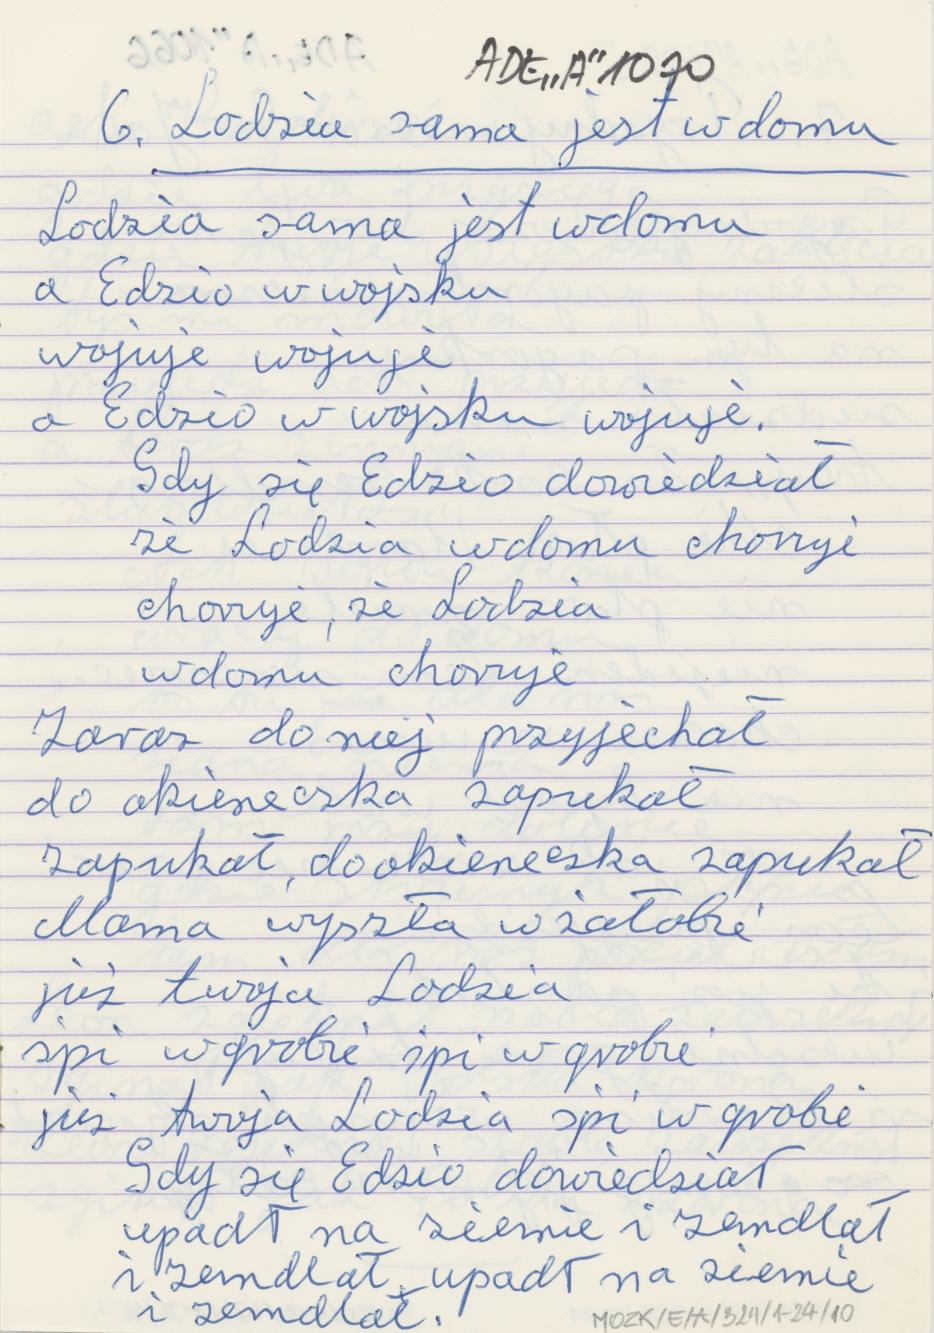 ADE„A"1070
6. Lodzia sama jest w domu
Lodzia sama jest w domu
a Edzio w wojsku
wojuje wojuje
a Edzio w wojsku wojuje.
Gdy się Edzio dowiedział
że Lodzia w domu choruje
choruje, że Lodzia
w domu choruje
Zaraz do niej przyjechał
do okieneczka zapukał
zapukał, do okieneczka zapukał
Mama wyszła w żałobie
już twoja Lodzia
śpi w grobie śpi w grobie
już twoja Lodzia śpi w grobie
Gdy się Edzio dowiedział
upadł na ziemie i zemdlał
i zemdlał, upadł na ziemie
i zemdlał.
MOZK/E/A/324/1-24/10